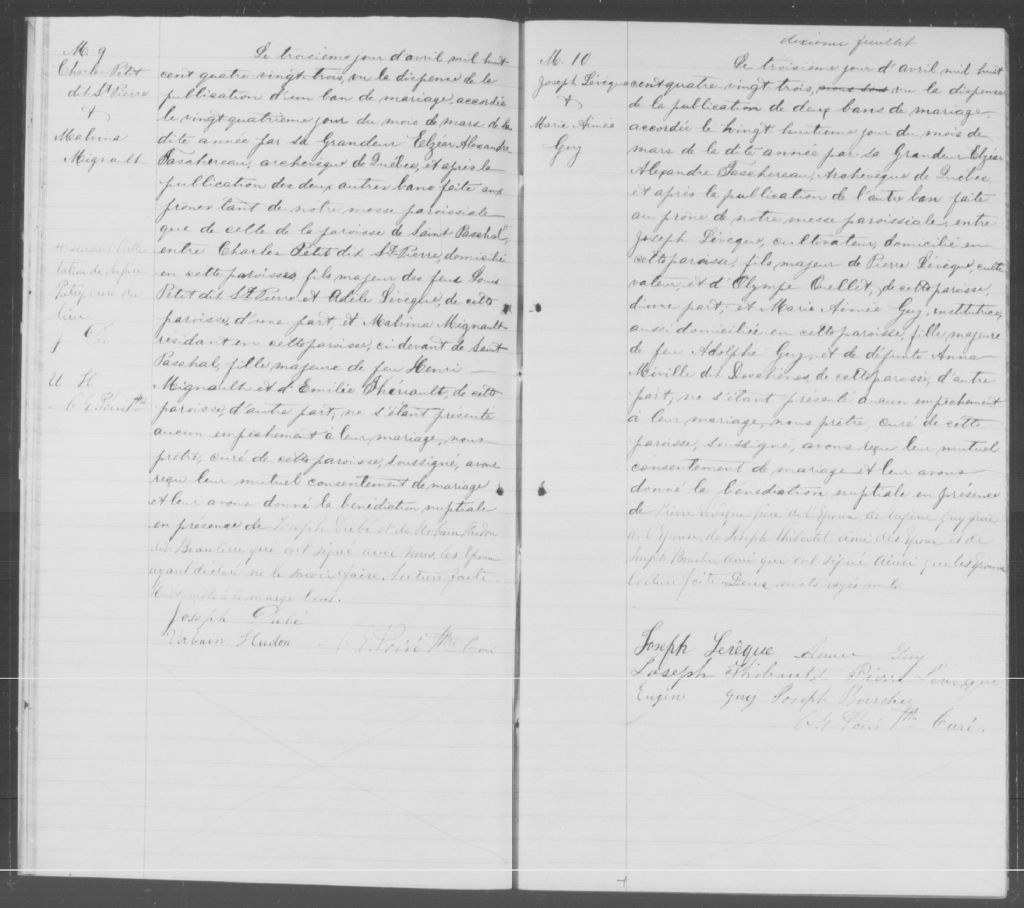 M. 9
Charles Petit
dit St Pierre
+
Malvina
Mignault
Le troisième jour d'avril mil huit
cent quatre vingt trois, vu la dispense de la
publication d'un ban de mariage, accordée
le vingt quatrième jour du mois de mars de la
dite année par sa Grandeur Elzéar Alexandre
Taschereau, archevêque de Québec, et après la
publication des deux autres bans faite aux
prônes tant de notre messe paroissiale
que de celle de la paroisse de Saint Paschal,
entre Charles Petit dit St Pierre, domicilié
en cette paroisse, fils majeur des feus Louis
Petit dit St Pierre et Adèle Lévêque, de cette
paroisse, d'une part, et Malvina Mignault
résidant en cette paroisse, ci-devant de Saint
Paschal, fille majeure de feu Henri
Mignault et d'Emilie Thériault, de cette
paroisse, d'autre part, ne s'étant présenté
aucun empêchement à leur mariage, nous
prêtre, curé de cette paroisse, soussigné, avons
reçu leur mutuel consentement de mariage
et leur avons donné la bénédiction nuptiale
en présence de Joseph Dubé et de Urbain Hudon
dit Beaulieu qui ont signé avec nous, les époux
ayant déclaré ne le savoir faire. Lecture faite.
mots à la marge bons.
Joseph Dubé
Urbain Hudon
Ptre Curé
J. D.
U H
Ptre
dixième feuillet
M. 10
Joseph Lévêque
+
Marie Aimée
Guy
Le troisième jour d'avril mil huit
cent quatre vingt trois, vu la dispense
de la publication de deux bans de mariage
accordée le vingt huitième jour du mois de
mars de la dite année par sa Grandeur Elzéar
Alexandre Taschereau, Archevêque de Québec,
et après la publication de l'autre ban faite
au prône de notre messe paroissiale, entre
Joseph Lévêque, cultivateur, domicilié en
cette paroisse, fils majeur de Pierre Lévêque, culti
vateur, et d'Olympe Ouellet, de cette paroisse,
d'une part, et Marie Aimée Guy, institutrice,
aussi domiciliée en cette paroisse, fille majeure
de feu Adolphe Guy, et de défunte Anna
Miville dit Deschênes, de cette paroisse, d'autre
part, ne s'étant présenté aucun empêchement
à leur mariage, nous prêtre, curé de cette
paroisse, soussigné, avons reçu leur mutuel
consentement de mariage et leur avons
donné la bénédiction nuptiale en présence
de Pierre Lévêque père de l'époux, de Eugène Guy frère
de l'épouse, de Joseph Thiboutot ami de l'époux et de
Joseph Boucher ami qui ont signé ainsi que les époux
Lecture faite. Deux mots rayés nuls.
Joseph Levêque Aimée Guy
Joseph Thiboutot Pierre Lévêque
Eugène Guy Joseph Boucher
Ptre Curé.